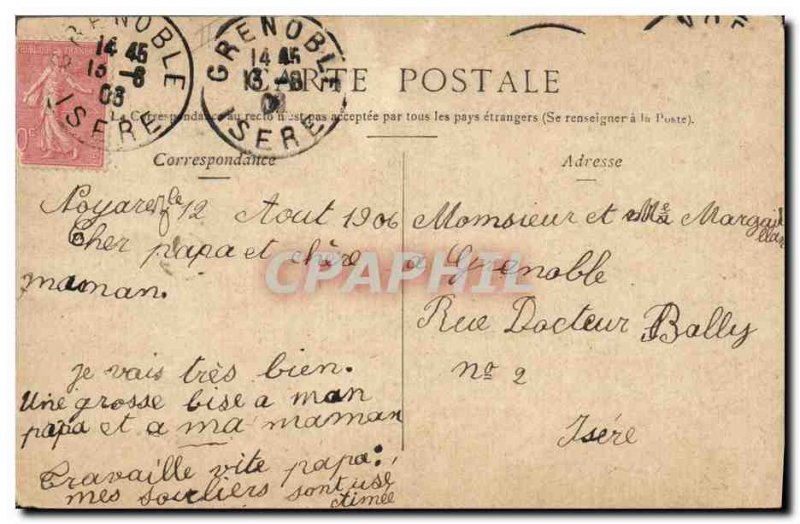 GRENOBLE
14 45
13 -8
06
ISERE
GRENOBLE
14 45
13 -8
ISERE
CARTE POSTALE
La Correspondance au recto n'est pas acceptée par tous les pays étrangers (Se renseigner à la Poste).
Correspondance
Noyarey le 12 Aout 1906
Cher papa et chère
maman.
je vais très bien.
Une grosse bise a mon
papa et a ma maman
Travaille vite papa:,
mes souliers sont use
Adresse
Momsieur et Me Margail
llan
a Grenoble
Rue Docteur Bally
no 2
Isére
CPAPHIL